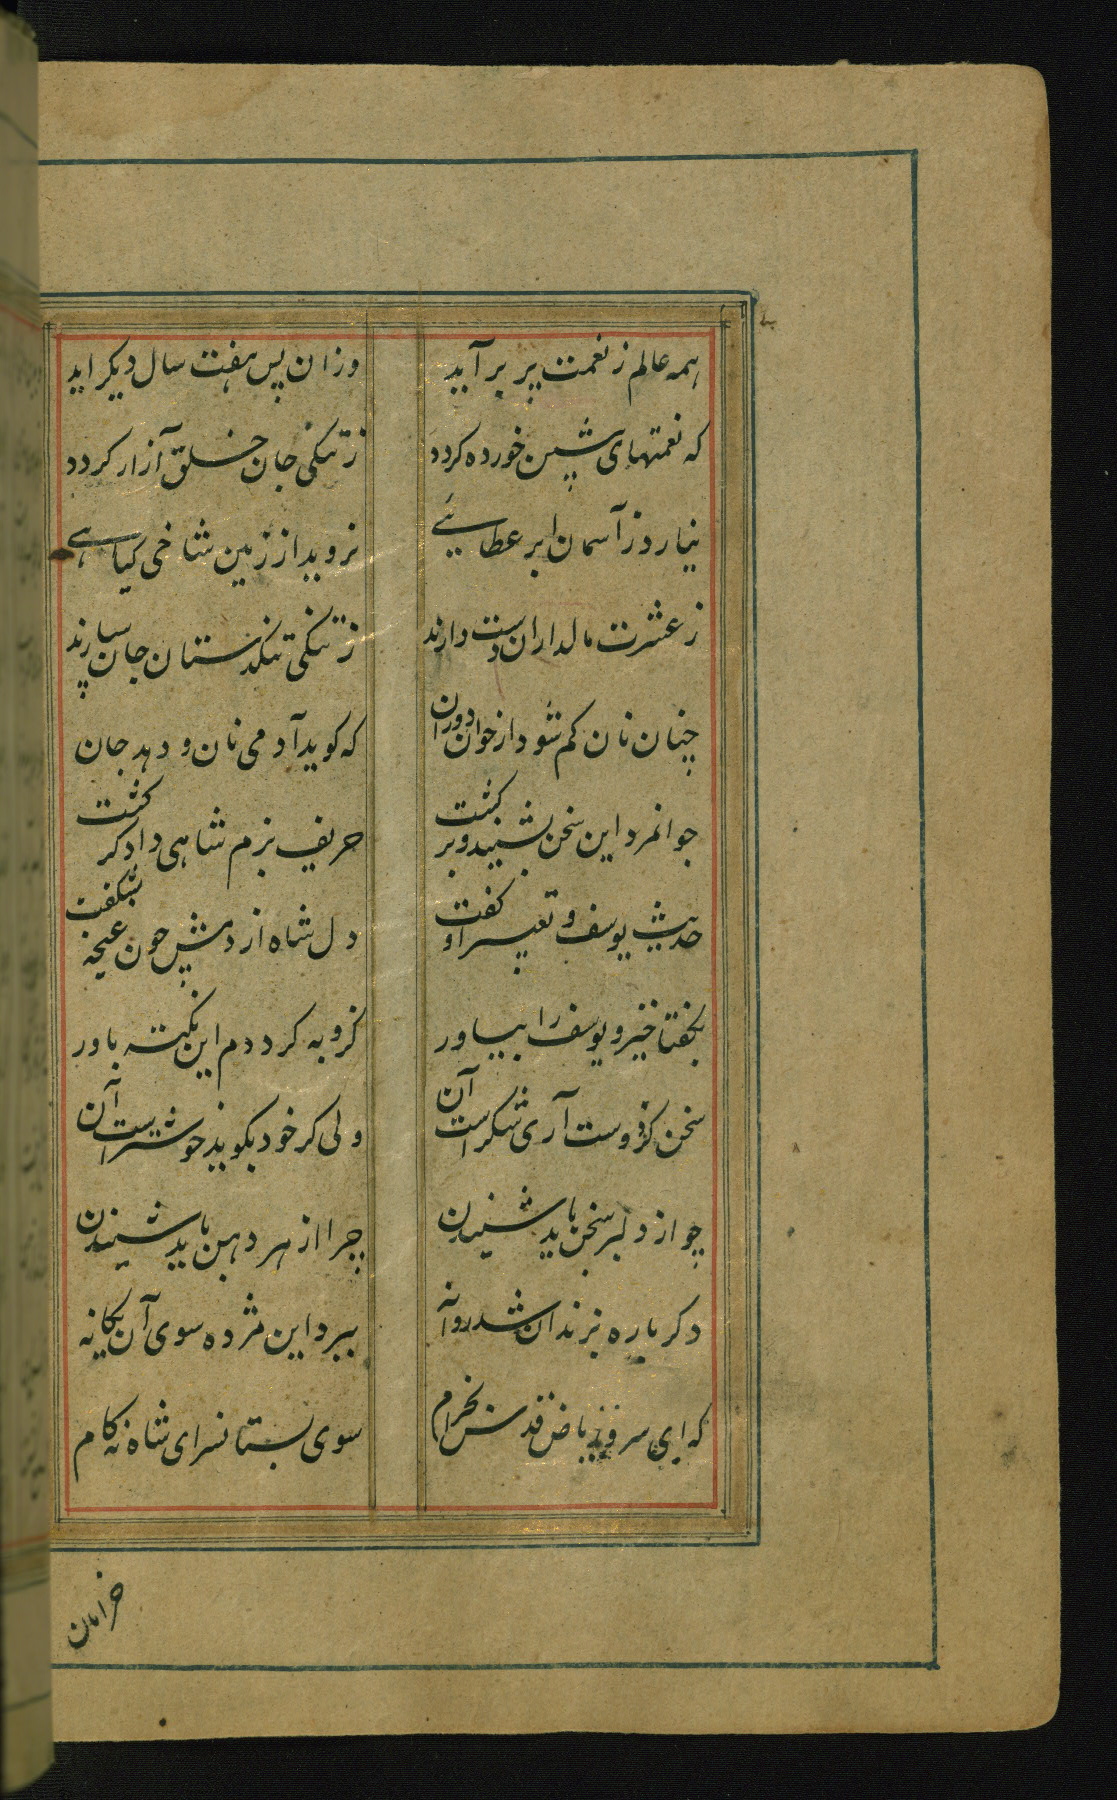 همه عالم ز نعمت پر برآید وزان پس هفت سال دیکر اید
که نعمتهای پشین خورده کردد ز تنکی جان خلق آزار کردد
نبارد ز آسمان ابر عطائی نروید از زمین شاخی کیاهی
ز عشرت مالداران دست دارند ز تنکی تنکدستان جان سپارند
چنان نان کم شود از خوان دوران که کوید آدمی نان و دهد جان
جوانمرد این سخن بشنید و بر کشت حریف بزم شاهی دادکر کشت
حدیث یوسف و تعبیر او کفت دل شاه از دمش چون غنچه بشکفت
بکفتا خیز و یوسف را بیاور کزو به کرددم این نکته باور
سخن کز دوست آری شکرست آن ولی کر خود بکوید خوشترست آن
چو از دلبر سخن باید شنیدن چرا از هر دهن باید شنیدن
دکر باره بزندان شد روانه ببرد این مژده سوی آن یکانه
که ای سرو ریاض قدس بخرام سوی بستانسرای شاه نه کام
خرامان